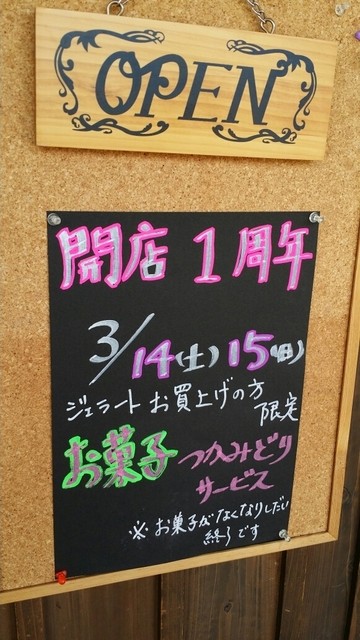 OPEN
開店 1周年
3/14(土) 15(日)
ジェラートお買上げの方
限定
お菓子 つかみどり
サービス
※お菓子がなくなりしだい
終了です